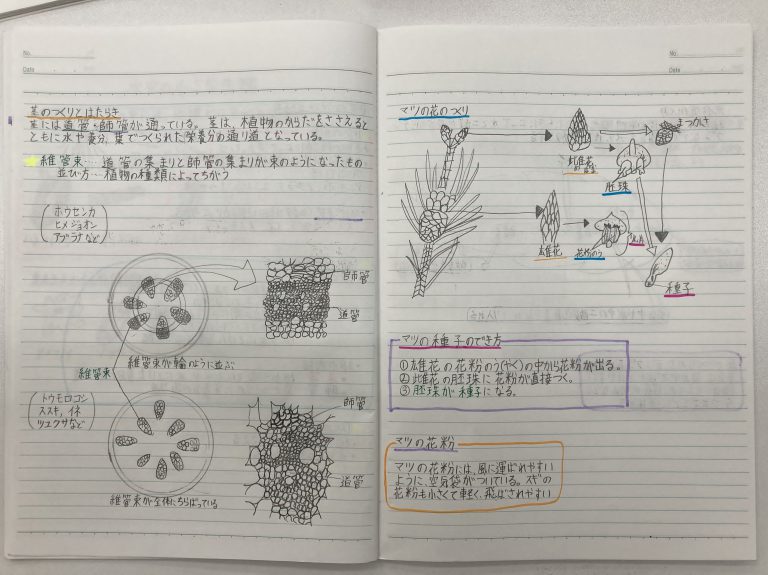 No.
Date
茎のつくりとはたらき
茎には道管・師管が通っている。茎は、植物のからだをささえると
ともに水や養分、葉でつくられた栄養分の通り道となっている。
維管束……道管の集まりと師管の集まりが束のようになったもの
並び方…植物の種類によってちがう
ホウセンカ
ヒメジョオン
アブラナなど
師管
道管
維管束が輪のように並ぶ
維管束
トウモロコシ
ススキ、イネ
ツユクサなど
師管
道管
維管束が全体にちらばっている
No.
Date
マツの花のつくり
まつかさ
雌花
胚珠
雄花
花粉のう
種子
マツの種子のでき方
①雄花の花粉のう(やく)の中から花粉が出る。
②雌花の胚珠に花粉が直接つく。
③胚珠が種子になる。
マツの花粉
マツの花粉には、風に運ばれやすい
ように、空気袋がついている。スギの
花粉も小さくて軽く、飛ばされやすい